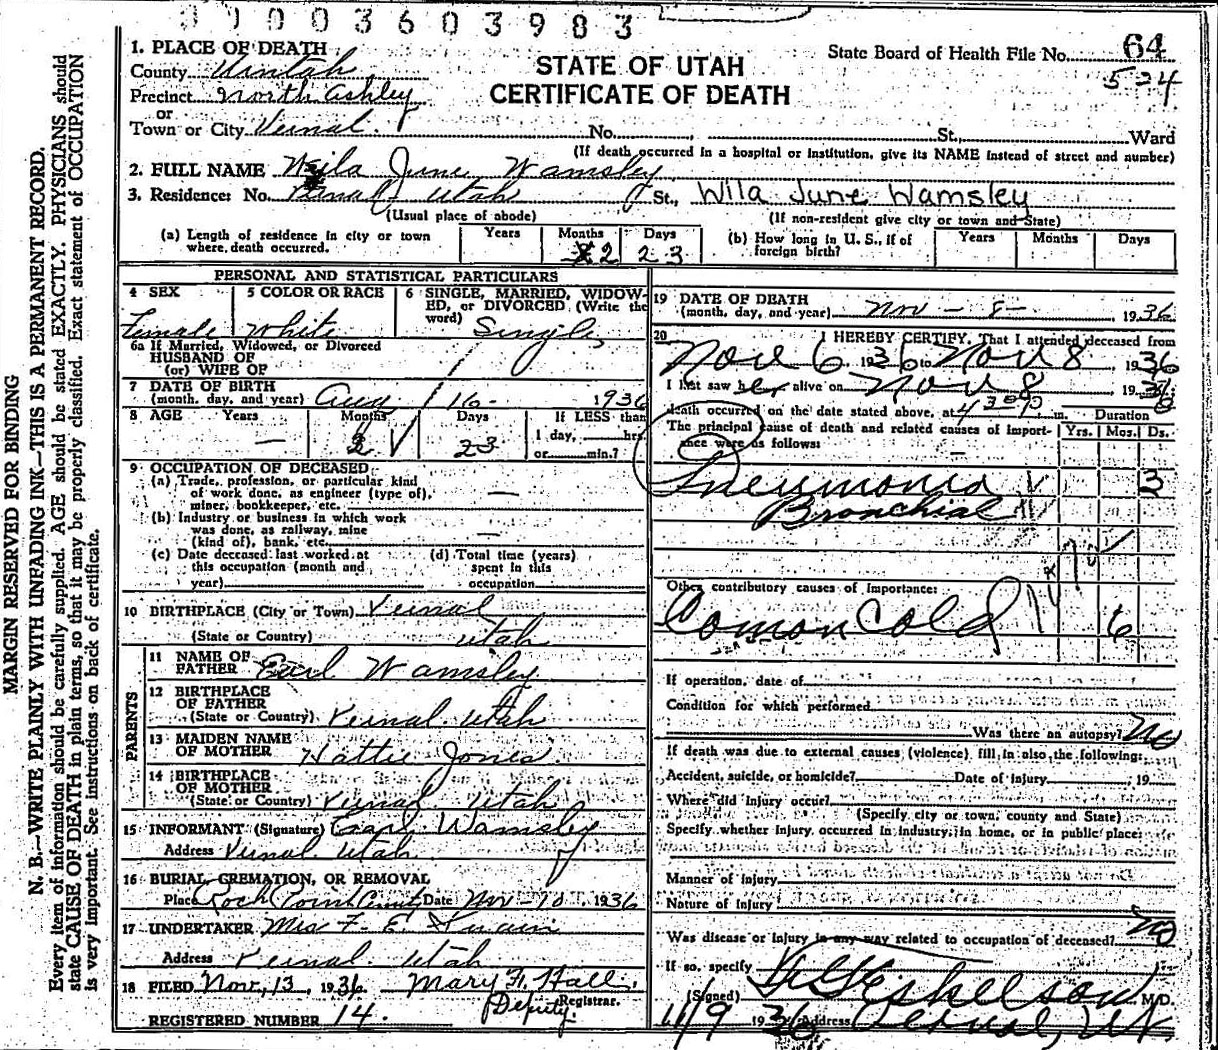 30003603983
State Board of Health File No. 64
524
STATE OF UTAH
CERTIFICATE OF DEATH
1. PLACE OF DEATH
County Uintah
Precinct North Ashley
or
Town or City Vernal. No. St., Ward
(If death occurred in a hospital or institution, give its NAME instead of street and number)
2. FULL NAME Wila June Wamsley
3. Residence: No. Vernal Utah St., Wila June Wamsley
(Usual place of abode) (If non-resident give city or town and State)
(a) Length of residence in city or town where death occurred. Years Months 2 Days 23
(b) How long in U. S., if of foreign birth? Years Months Days
PERSONAL AND STATISTICAL PARTICULARS
4 SEX Female
5 COLOR OR RACE White
6 SINGLE, MARRIED, WIDOWED, or DIVORCED (Write the word) Single
6a If Married, Widowed, or Divorced
HUSBAND OF
(or) WIFE OF
7 DATE OF BIRTH
(month, day, and year) Aug 16- 1936
8 AGE Years — Months 2 Days 23 If LESS than
1 day, hrs.
or min.?
9 OCCUPATION OF DECEASED
(a) Trade, profession, or particular kind
of work done, as engineer (type of),
miner, bookkeeper, etc. —
(b) Industry or business in which work
was done, as railway, mine
(kind of), bank, etc. —
(c) Date deceased last worked at
this occupation (month and
year)
(d) Total time (years)
spent in this
occupation
10 BIRTHPLACE (City or Town) Vernal
(State or Country) Utah
PARENTS
11 NAME OF FATHER Earl Wamsley
12 BIRTHPLACE OF FATHER
(State or Country) Vernal Utah
13 MAIDEN NAME OF MOTHER Hattie Jones
14 BIRTHPLACE OF MOTHER
(State or Country) Vernal Utah
15 INFORMANT (Signature) Earl Wamsley
Address Vernal Utah
16 BURIAL, CREMATION, OR REMOVAL
Place Rock Point Date Nov-10, 1936
17 UNDERTAKER Mrs F. E.
Address Vernal Utah
18 FILED Nov, 13, 1936 Mary F. Hall.
Deputy. Registrar.
REGISTERED NUMBER 14.
19 DATE OF DEATH
(month, day, and year) Nov - 8 - 1936
20 I HEREBY CERTIFY, That I attended deceased from
Nov 6 1936 to Nov 8, 1936
I last saw her alive on Nov 8, 1936
death occurred on the date stated above, at 4 30 P. m.
Duration
The principal cause of death and related causes of importance were as follows: Yrs. Mos. Ds.
Pneumonia 3
Bronchial
Other contributory causes of importance:
Comon Cold 6
If operation, date of
Condition for which performed
Was there an autopsy? No
If death was due to external causes (violence) fill in also the following:
Accident, suicide, or homicide? Date of injury, 19
Where did injury occur?
(Specify city or town, county and State)
Specify whether injury occurred in industry, in home, or in public place:
Manner of injury
Nature of injury
Was disease or injury in any way related to occupation of deceased? No
If so, specify
(Signed) Eskelson M.D.
11/9 1936 Address Vernal, Ut.
MARGIN RESERVED FOR BINDING
N. B.—WRITE PLAINLY WITH UNFADING INK—THIS IS A PERMANENT RECORD.
Every item of information should be carefully supplied. AGE should be stated EXACTLY. PHYSICIANS should
state CAUSE OF DEATH in plain terms, so that it may be properly classified. Exact statement of OCCUPATION
is very important. See instructions on back of certificate.